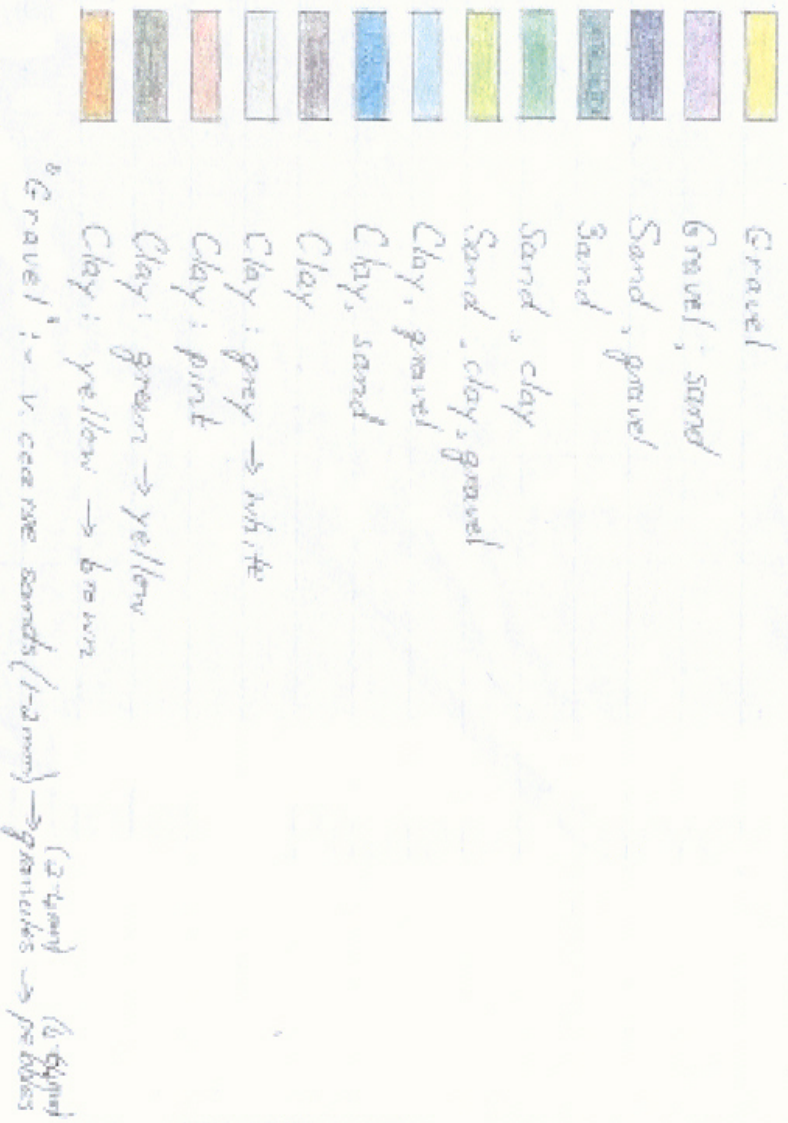 Gravel
Gravel; sand
Sand, gravel
Sand
Sand, clay
Sand, clay, gravel
Clay, gravel
Clay, sand
Clay
Clay: grey → white
Clay: pink
Clay: green → yellow
Clay: yellow → brown
(2-4mm) (4-64mm)
"Gravel":- v. coarse sands (1-2mm) → granules → pebbles